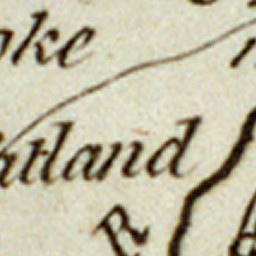 oke
atland
R